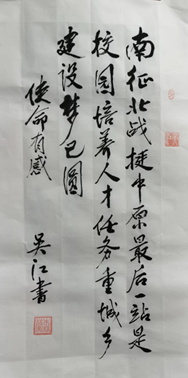 南征北战挺中原最后一站是
校园培养人才任务重城乡
建设梦已圆
使命有感
吴江书